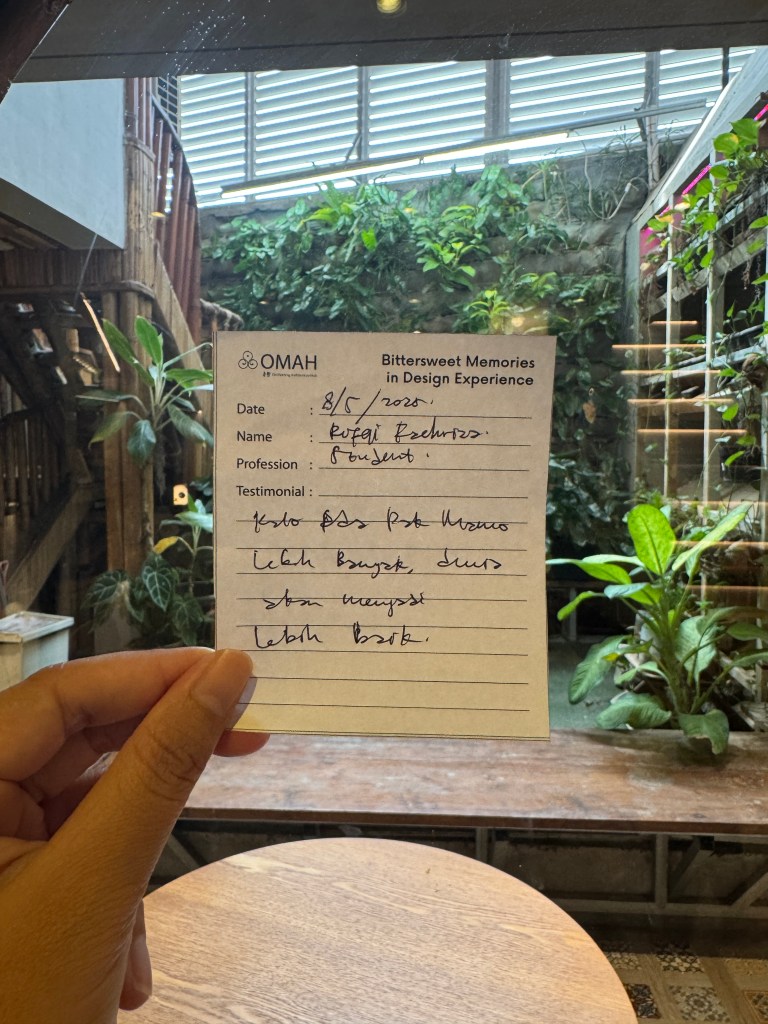 OMAH
Bittersweet Memories
in Design Experience
Date : 8/5/2025.
Name :
Profession : Student.
Testimonial :
Kalo ada Pak Mamo
Lebih Banyak, dunia
akan menjadi
Lebih Baik.